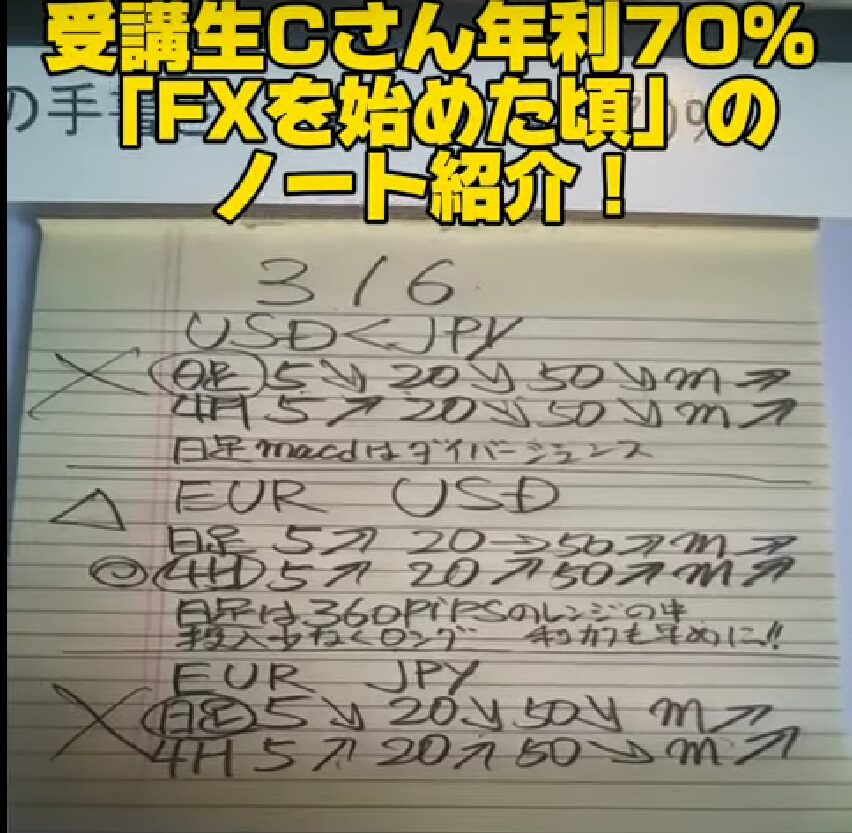 受講生Cさん年利70%
「FXを始めた頃」の
ノート紹介！
の手書き
3/6
USD<JPY
× 日足 5↘ 20↘ 50↘ m↗
4H 5↗ 20↘ 50↘ m↗
日足macdはダイバージョンス
EUR USD
△ 日足 5↗ 20→50↗m↗
◎ 4H 5↗ 20↗50↗m↗
日足は360PiPSのレンジの中
投入少なくロング 利カクも早めに!!
EUR JPY
× 日足 5↘ 20↘ 50↘ m↗
4H 5↗ 20↗ 50↘ m↗